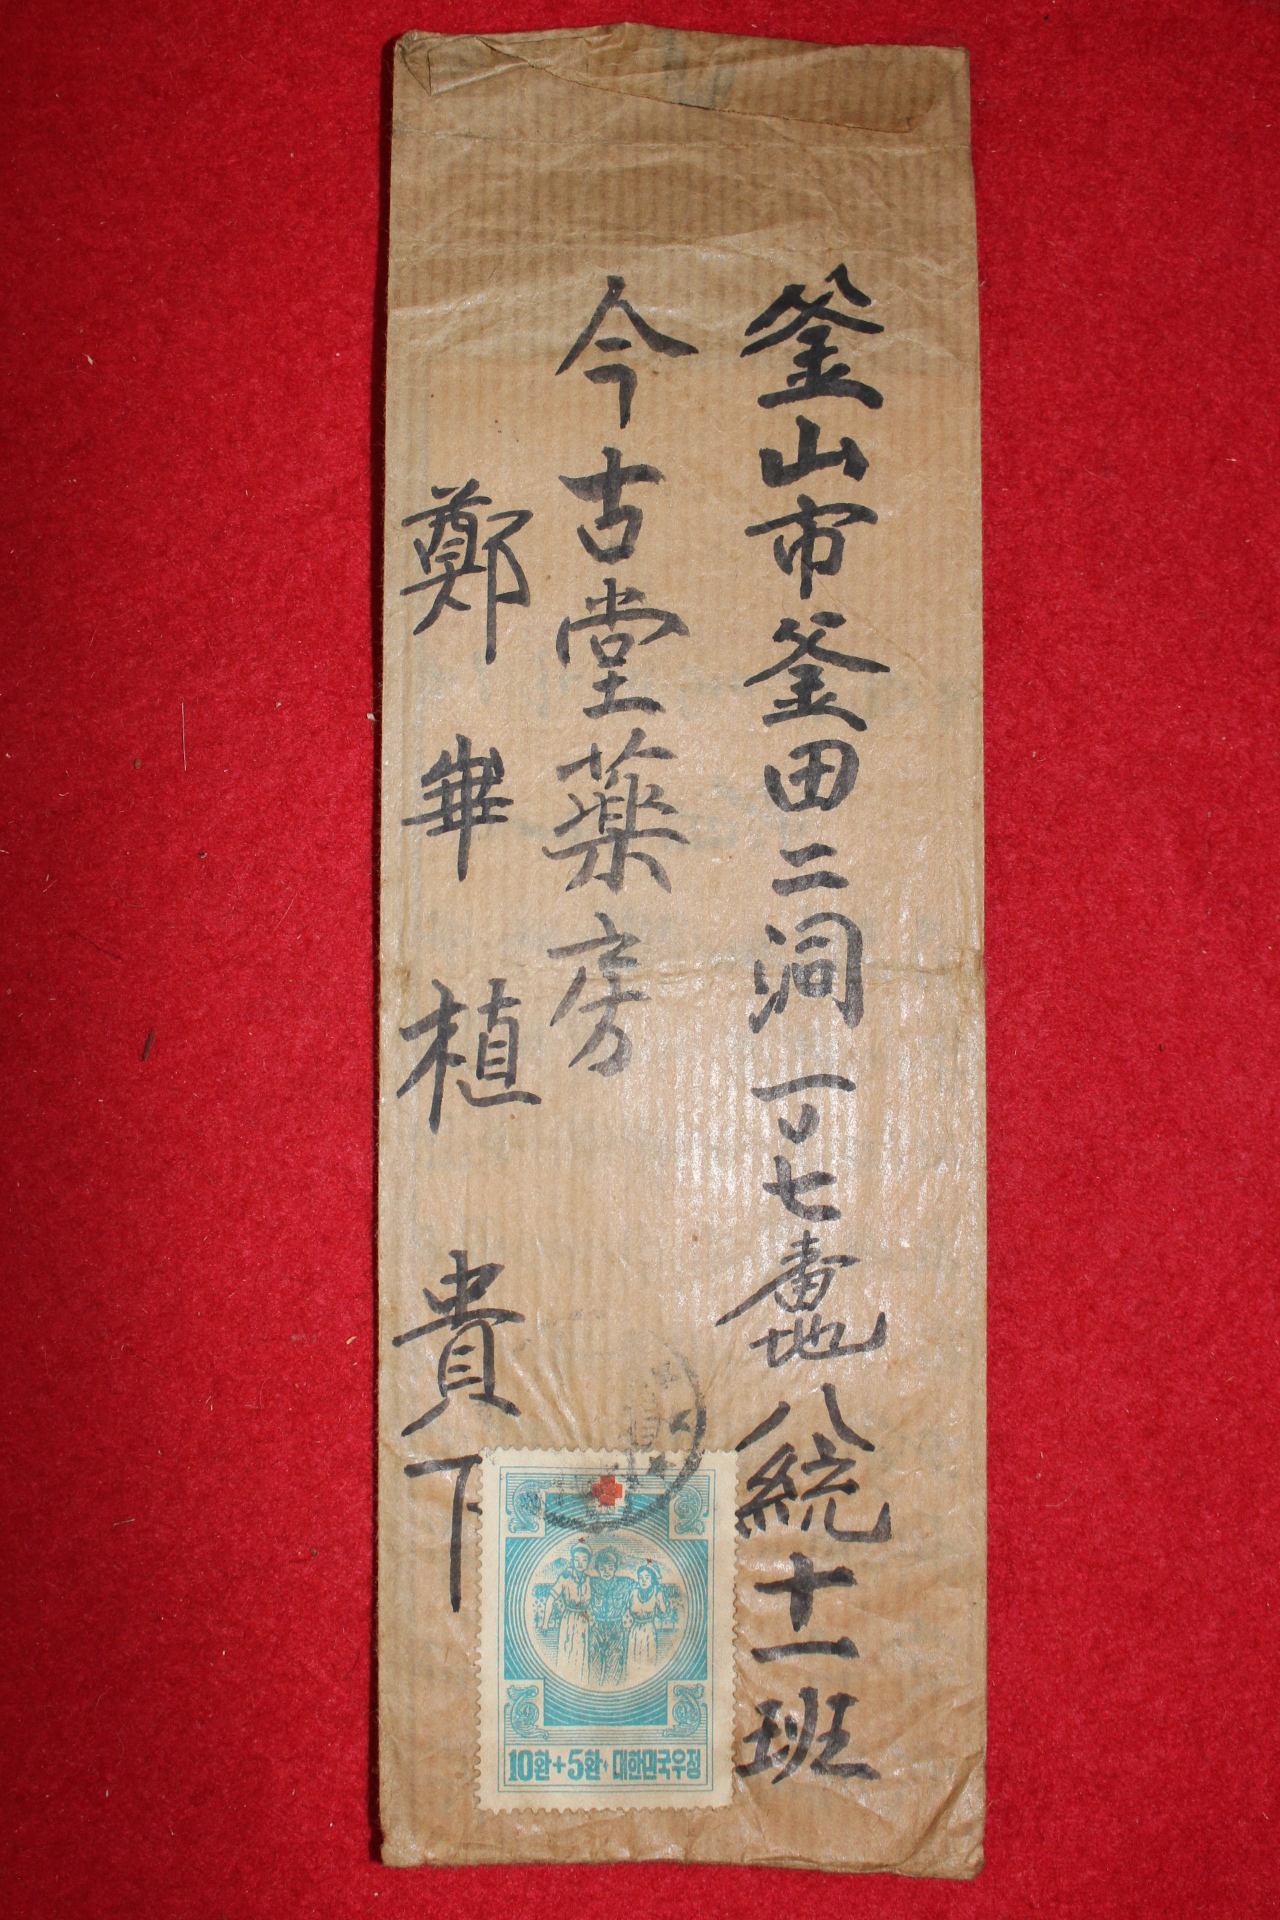 釜山市釜田二洞一〇七番地八統十一班
今古堂藥房
鄭崋植貴下
10환+5환·대한민국우정